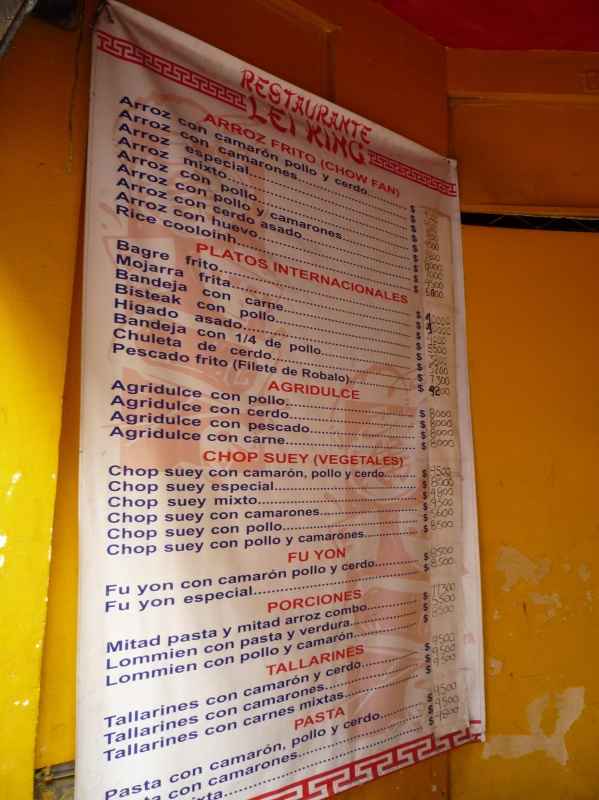 RESTAURANTE
LEI KING
ARROZ FRITO (CHOW FAN)
Arroz con camarón pollo y cerdo $
Arroz con camarones $
Arroz especial $
Arroz mixto $
Arroz con pollo $
Arroz con pollo y camarones $ 8000
Arroz con cerdo asado $ 7000
Arroz con huevo $
Rice coolohh $
PLATOS INTERNACIONALES
Bagre frito $
Mojarra frita $
Bandeja con carne $
Bisteak con pollo $ 5500
Higado asado $
Bandeja con 1/4 de pollo $
Chuleta de cerdo $ 7300
Pescado frito (Filete de Robalo) $
AGRIDULCE
Agridulce con pollo $ 8000
Agridulce con cerdo $ 8000
Agridulce con pescado $ 8000
Agridulce con carne $ 8000
CHOP SUEY (VEGETALES)
Chop suey con camarón, pollo y cerdo $ 9500
Chop suey especial $ 8000
Chop suey mixto $ 4800
Chop suey con camarones $ 9500
Chop suey con pollo $ 5600
Chop suey con pollo y camarones $ 8500
FU YON
Fu yon con camarón pollo y cerdo $ 8500
Fu yon especial $ 8500
PORCIONES
Mitad pasta y mitad arroz combo $ 11300
Lommien con pasta y verdura $ 9500
Lommien con pollo y camarón $ 8500
TALLARINES
Tallarines con camarón y cerdo $ 9500
Tallarines con camarones $ 9500
Tallarines con carnes mixtas $ 9500
PASTA
Pasta con camarón, pollo y cerdo $ 9500
con camarones $ 9500
mixta $ 4800